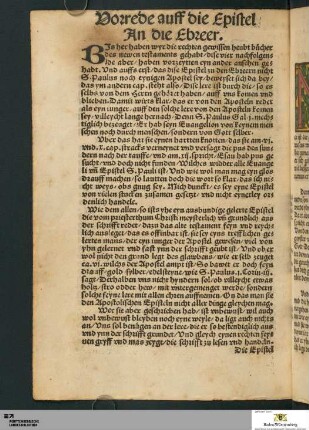 Vorrede auff die Epistel
An die Ebreer.
BIs her haben wyr die rechten gewissen heubt bücher
des newen testaments gehabt, dise vier nachfolgende
aber, haben vorzeytten eyn ander ansehen gehabt
Vnd auffs erst, das dise Epistel zu den Ebreern nicht
S. Paulus noch eynigen Apostel sey, beweyset sich da bey,
das ym andern cap. steht also, Dise lere ist durch die, so es
selbs von dem Herrn gehöret haben, auff vns komen vnd
blieben, Damit wirts klar, das er von den Aposteln redet
als eyn iunger, auff den solche lere von den Aposteln komen
sey, villeycht lange hernach, Denn S. Paulus Gal. 1. mechtiglich
bezeuget, Er hab seyn Euangelion von keynem menschen
noch durch menschen, sondern von Gott selber.
Vber das hat sie eynen hartten knotten, das sie am vi.
vnd. x. cap. stracks verneynet vnd versaget die pus den sundern
nach der tauffe, vnd am. xij. spricht, Esau hab pus gesucht,
vnd doch nicht funden, Wilchs widder alle Euangeli
vñ Epistel S. Pauli ist, Vnd wie wol man mag eyn glos
drauff machen, so lautten doch die wort so klar, das ich nicht
weys, obs gnug sey, Mich dunckt, es sey eyne Epistel
von vielen stucken zusamen gesetzt, vnd nicht eynerley ordenlich
handele.
Wie dem allen, so ists yhe eyn ausbundige gelerte Epistel
die vom priesterthum Christi meysterlich vñ grundlich aus
der schrifft redet, dazu das alte testament feyn vnd reychlich
aus leget, das es offinbar ist, sie sey eyns trefflichen gelerten
mans, der eyn iunger der Apostel gewesen, viel von
yhn gelernet vnd fast ynn der schrifft geubt ist, Vnd ob er
wol nicht den grund legt des glawbens, wie er selb zeuget
ca. vi. wilchs der Apostel ampt ist, So bawet er doch feyn
drauff, gold, silber, edelsteyne, wie S. Paulus. 1. Corin. iij.
sagt, Derhalben vns nicht hyndern sol, ob villeycht etwas
holtz, stro odder hew, mit vntergemenget werde, sondern
solche feyne lere mit allen ehren auffnemen, On das man sie
den Apostolischen Episteln nicht aller dinge gleychen mag.
Wer sie aber geschrieben hab, ist vnbewust, wil auch
wol vnbewust bleyben noch eyne weyle, da ligt auch nichts
an, Vns sol benügen an der lere, die er so bestendiglich aus
vnd ynn der schrifft grundet, Vnd gleych eynen rechten feynen
gryff vnd mas zeygt, die schrifft zu lesen vnd handeln.
Die Epistel
Baden-Württemberg